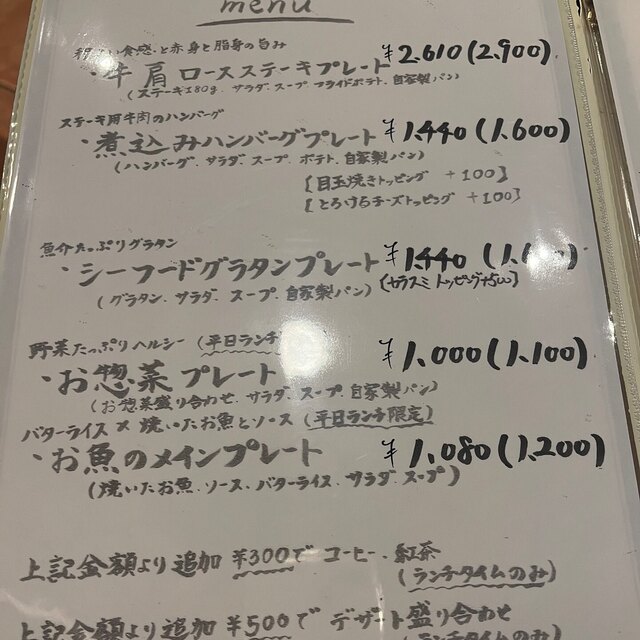 menu
食感と赤身と脂身の旨み
・牛肩ロースステーキプレート ¥2,610(2,900)
(ステーキ180g、サラダ、スープ、フライドポテト、自家製パン)
ステーキ用牛肉のハンバーグ
・煮込みハンバーグプレート ¥1,440(1,600)
(ハンバーグ、サラダ、スープ、ポテト、自家製パン)
[目玉焼きトッピング +100]
[とろけるチーズトッピング +100]
魚介たっぷりグラタン
・シーフードグラタンプレート ¥1,440
(グラタン、サラダ、スープ、自家製パン) [カラスミトッピング+500]
野菜たっぷりヘルシー (平日ランチ
・お惣菜プレート ¥1,000(1,100)
(お惣菜盛り合わせ、サラダ、スープ、自家製パン)
バターライス×焼いたお魚とソース (平日ランチ限定)
・お魚のメインプレート ¥1,080(1,200)
(焼いたお魚、ソース、バターライス、サラダ、スープ)
上記金額より追加 ¥300で コーヒー、紅茶
(ランチタイムのみ)
上記金額より追加 ¥500で デザート盛り合わせ
(ランチタイムのみ)